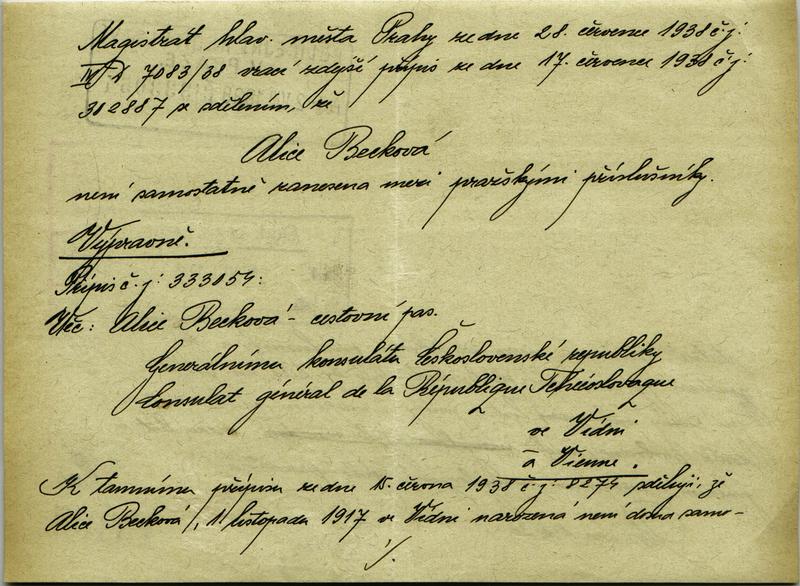 Magistrat hlav. města Prahy ze dne 28. července 1938 č.j:
IV/D 7083/38 vrací zdejší přípis ze dne 17. července 1938 č.j:
302887 se sdělením, že
Alice Becková
není samostatně zanesena mezi pražskými příslušníky.
Výpravně.
Přípis č.j: 333054:
Věc: Alice Becková - cestovní pas.
Generálnímu konsulátu Československé republiky
Consulat général de la République Tchécoslovaque
ve Vídni
à Vienne.
K tamnímu přípisu ze dne 15. června 1938 č.j: 8274 sděluji, že
Alice Becková, 11 listopadu 1917 ve Vídni narozená není doma samo-
./.